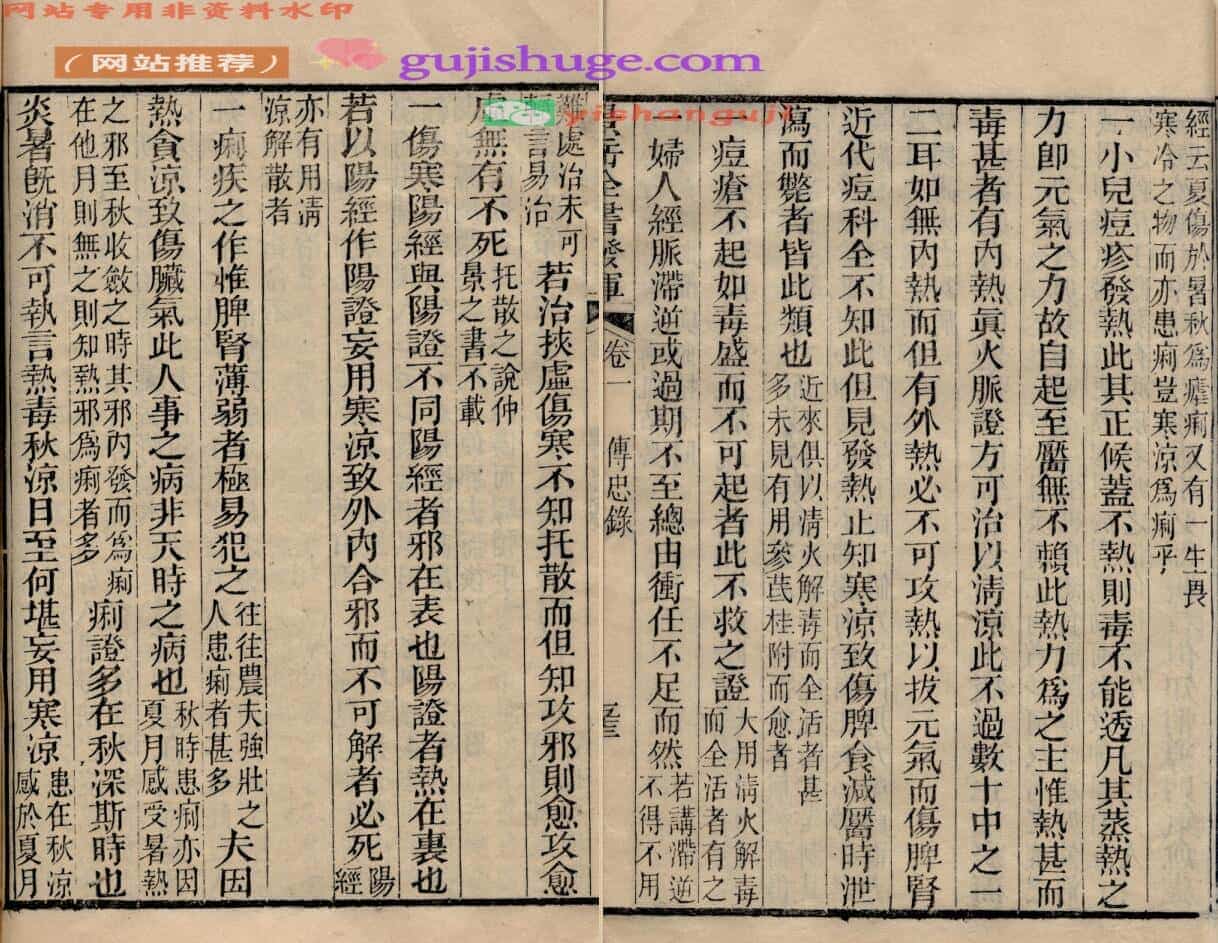 网站专用非资料水印
（网站推荐）
gujishuge.com
yishanguji
經云夏傷於暑秋爲瘧痢又有一生畏
寒冷之物而亦患痢豈寒涼爲痢乎
一小兒痘疹發熱此其正候蓋不熱則毒不能透凡其蒸熱之
力卽元氣之力故自起至靨無不賴此熱力爲之主惟熱甚而
毒甚者有內熱眞火脈證方可治以清涼此不過數十中之一
二耳如無內熱而但有外熱必不可攻熱以拔元氣而傷脾腎
近代痘科全不知此但見發熱止知寒涼致傷脾食減靨時泄
瀉而斃者皆此類也
近來俱以清火解毒而全活者甚
多未見有用參芪桂附而愈者
痘瘡不起如毒盛而不可起者此不救之證
大用清火解毒
而全活者有之
婦人經脈滯逆或過期不至總由衝任不足而然
若講滯逆
不得不用
景岳全書發揮
卷一
傳忠錄
難處治未可
言易治
若治挾虛傷寒不知托散而但知攻邪則愈攻愈
虛無有不死
托散之說仲
景之書不載
一傷寒陽經與陽證不同陽經者邪在表也陽證者熱在裏也
若以陽經作陽證妄用寒涼致外內合邪而不可解者必死
陽
經
亦有用清
涼解散者
一痢疾之作惟脾腎薄弱者極易犯之
往往農夫強壯之
人患痢者甚多
夫因
熱貪涼致傷臟氣此人事之病非天時之病也
秋時患痢亦因
夏月感受暑熱
之邪至秋收斂之時其邪內發而爲痢
在他月則無之則知熱邪爲痢者多
痢證多在秋深斯時也
炎暑旣消不可執言熱毒秋涼日至何堪妄用寒涼
患在秋涼
感於夏月